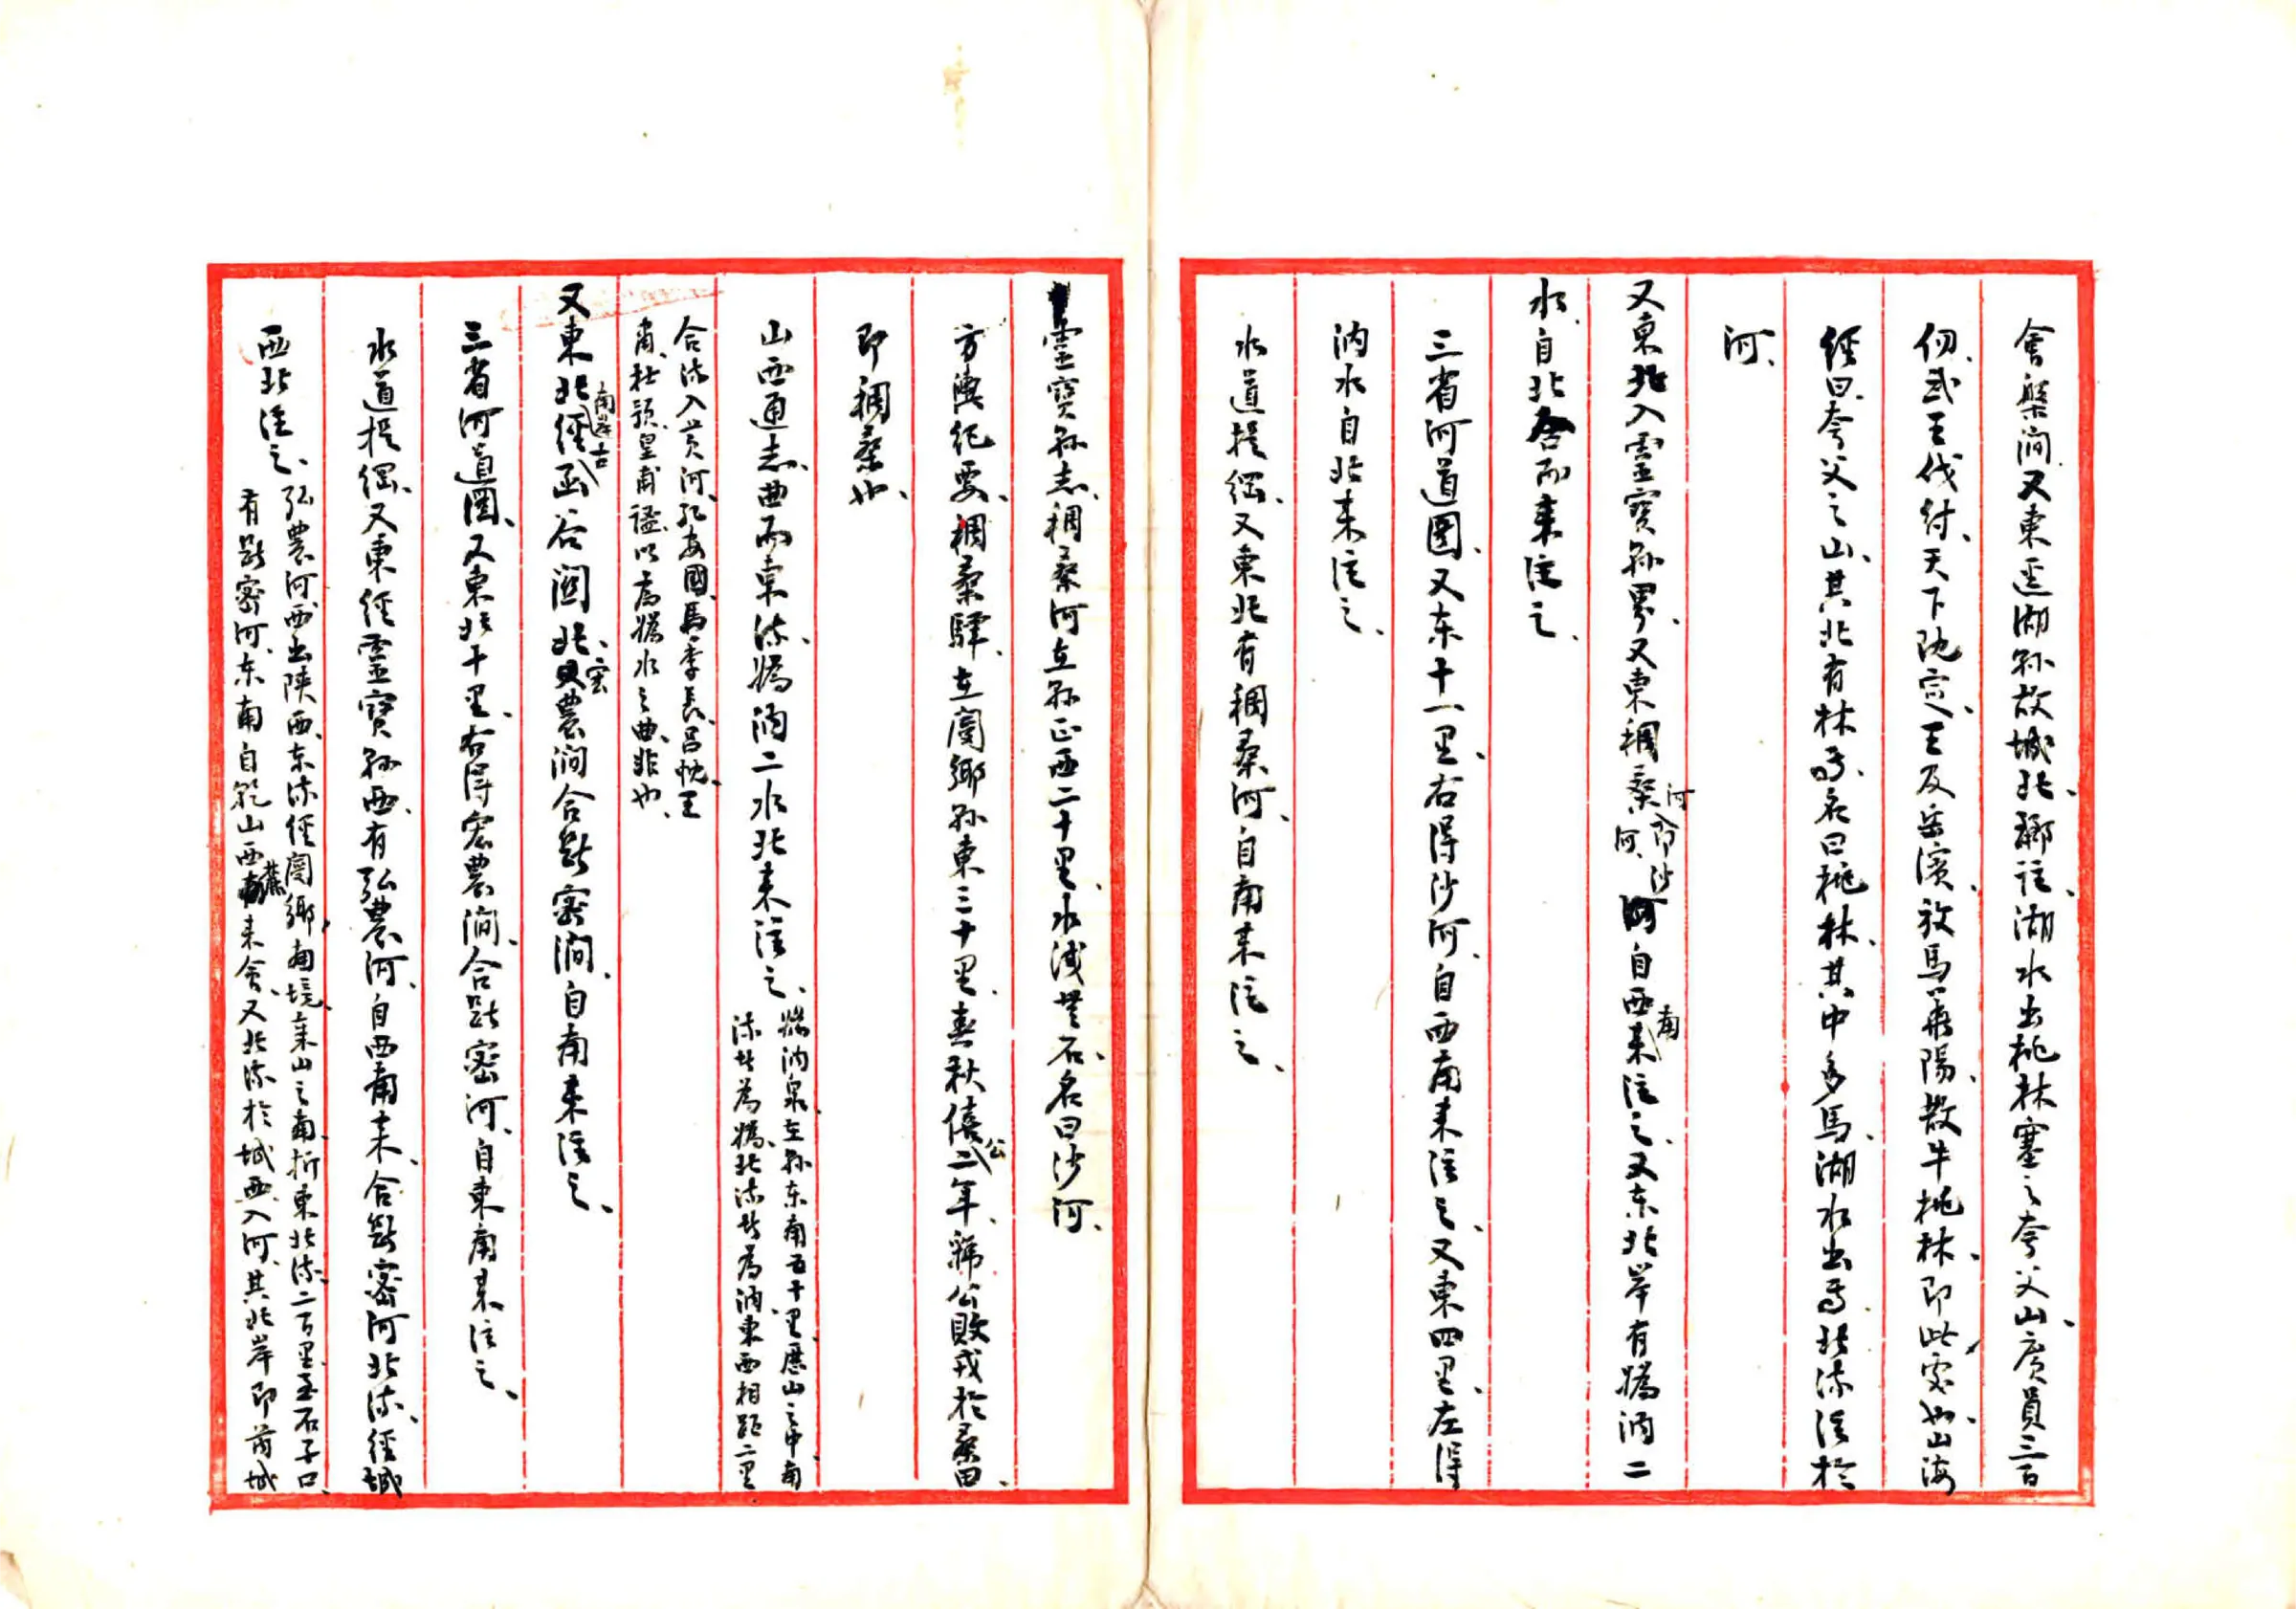 會槃澗、又東逕湖縣故城北、酈注、湖水出桃林塞之夸父山、廣員三百
仞、武王伐紂、天下既定、王及岳濱、放馬華陽、散牛桃林、即此處也、山海
經曰、夸父之山、其北有林焉、名曰桃林、其中多馬、湖水出焉、北流注於
河、
又東北入靈寶縣界、又東稠桑河即沙河、自西南來注之、又东北岸有媯汭二
水自北來注之、
三省河道圖、又东十一里、右得沙河、自西南来注之、又東四里、左得
汭水自北来注之、
水道提綱、又東北有稠桑河、自南来注之、
靈寶縣志、稠桑河在縣正西二十里、水淺無石、名曰沙河、
方輿紀要、稠桑驛、在閿鄉縣東三十里、春秋僖公二年、虢公敗戎於桑田、
即稠桑也、
山西通志、曲而東流、媯汭二水北來注之、
媯汭泉在縣东南五十里、歷山之中、南
流者為媯、北流者為汭、東西相距二里
合流入黄河、孔安國、馬季長、呂忱、王
肅、杜預、皇甫謐、以为媯水之曲、非也、
又東北經南岸古函谷關北、宏農澗合斷密澗、自南来注之、
三省河道圖、又東北十里、右得宏農澗、合斷密河、自東南来注之、
水道提綱、又東經靈寶縣西、有弘農河、自西南来、合斷密河北流、經城
西北注之、
弘農河西出陕西、东流經閿鄉南境、秦山之南、折東北流、二百里、至石子口、
有斷密河、东南自熊山西麓来會、又北流於城西入河、其北岸即芮城